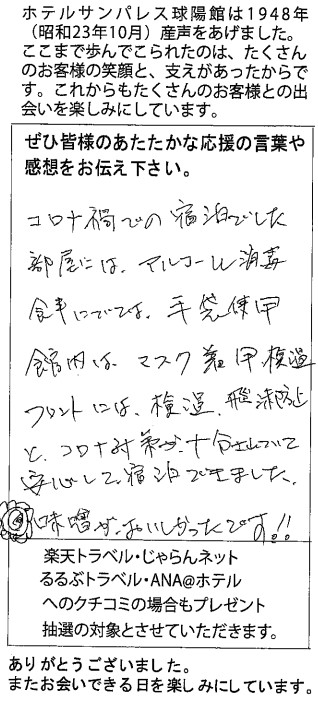 ホテルサンパレス球陽館は1948年
（昭和23年10月）産声をあげました。
ここまで歩んでこられたのは、たくさん
のお客様の笑顔と、支えがあったからで
す。これからもたくさんのお客様との出
会いを楽しみにしています。
ぜひ皆様のあたたかな応援の言葉や
感想をお伝え下さい。
コロナ禍での宿泊でした
部屋には、アルコール消毒
食事にでは、手袋使用
館内は、マスク着用、検温
フロントには、検温、飛沫防止
と、コロナ対策が、十分されていて
安心して宿泊できました。
味噌が、おいしかったです!!
楽天トラベル・じゃらんネット
るるぶトラベル・ANA@ホテル
へのクチコミの場合もプレゼント
抽選の対象とさせていただきます。
ありがとうございました。
またお会いできる日を楽しみにしています。